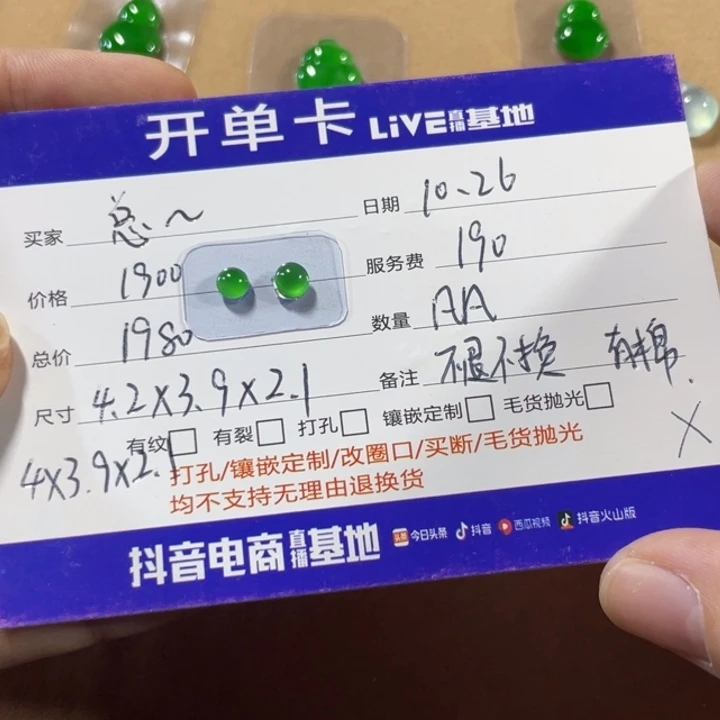 开单卡 LiVE直播基地
买家 总～ 日期 10、26
价格 1900 服务费 190
总价 1980 数量 AA
尺寸 4.2×3.9×2.1 备注 不退不换 有棉.
有纹□ 有裂□ 打孔□ 镶嵌定制□ 毛货抛光□
4×3.9×2.1 ×
打孔/镶嵌定制/改圈口/买断/毛货抛光
均不支持无理由退换货
抖音电商直播基地 头条 今日头条 抖音 西瓜视频 抖音火山版